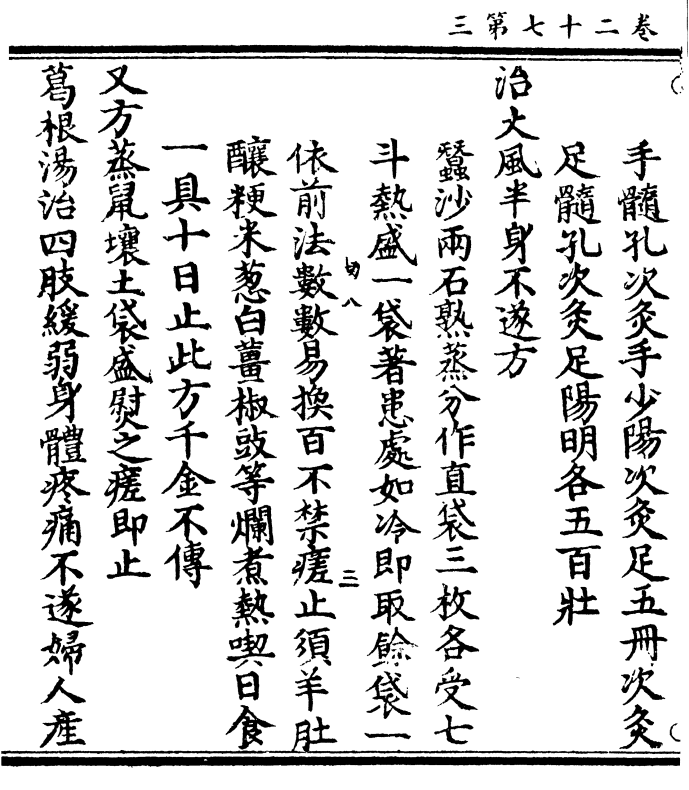 卷二十七第三
手髓孔次灸手少陽次灸足五冊次灸
足髓孔次灸足陽明各五百壯
治大風半身不遂方
蠶沙兩石熟蒸分作直袋三枚各受七
斗熱盛一袋著患處如冷即取餘袋一
依前法數數易換百不禁瘥止須羊肚
切八
三
釀粳米葱白薑椒豉等爛煮熱喫日食
一具十日止此方千金不傳
又方蒸鼠壤土袋盛熨之瘥即止
葛根湯治四肢緩弱身體疼痛不遂婦人產